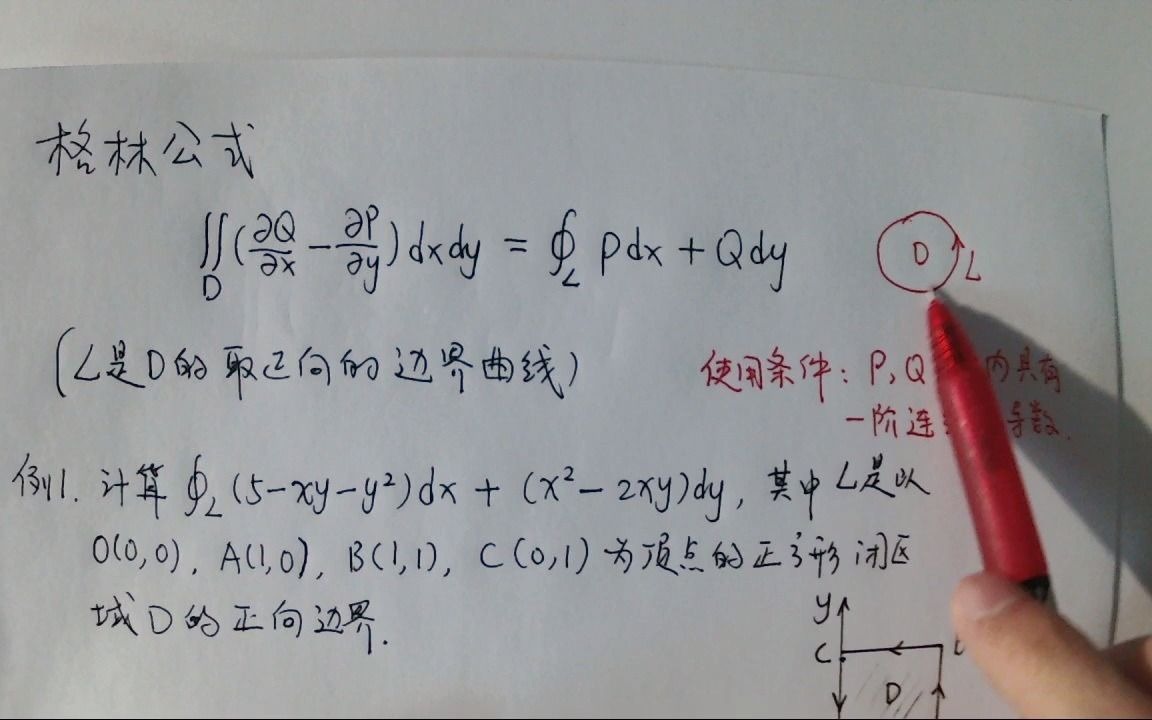 格林公式
∬_D (∂Q/∂x − ∂P/∂y) dxdy = ∮_L Pdx + Qdy
D L
(L是D的取正向的边界曲线)
使用条件: P, Q 内具有
一阶连 导数.
例1. 计算 ∮_L (5−xy−y²)dx + (x²−2xy)dy, 其中L是以
O(0,0), A(1,0), B(1,1), C(0,1) 为顶点的正方形闭区
域D的正向边界.
y
C
D